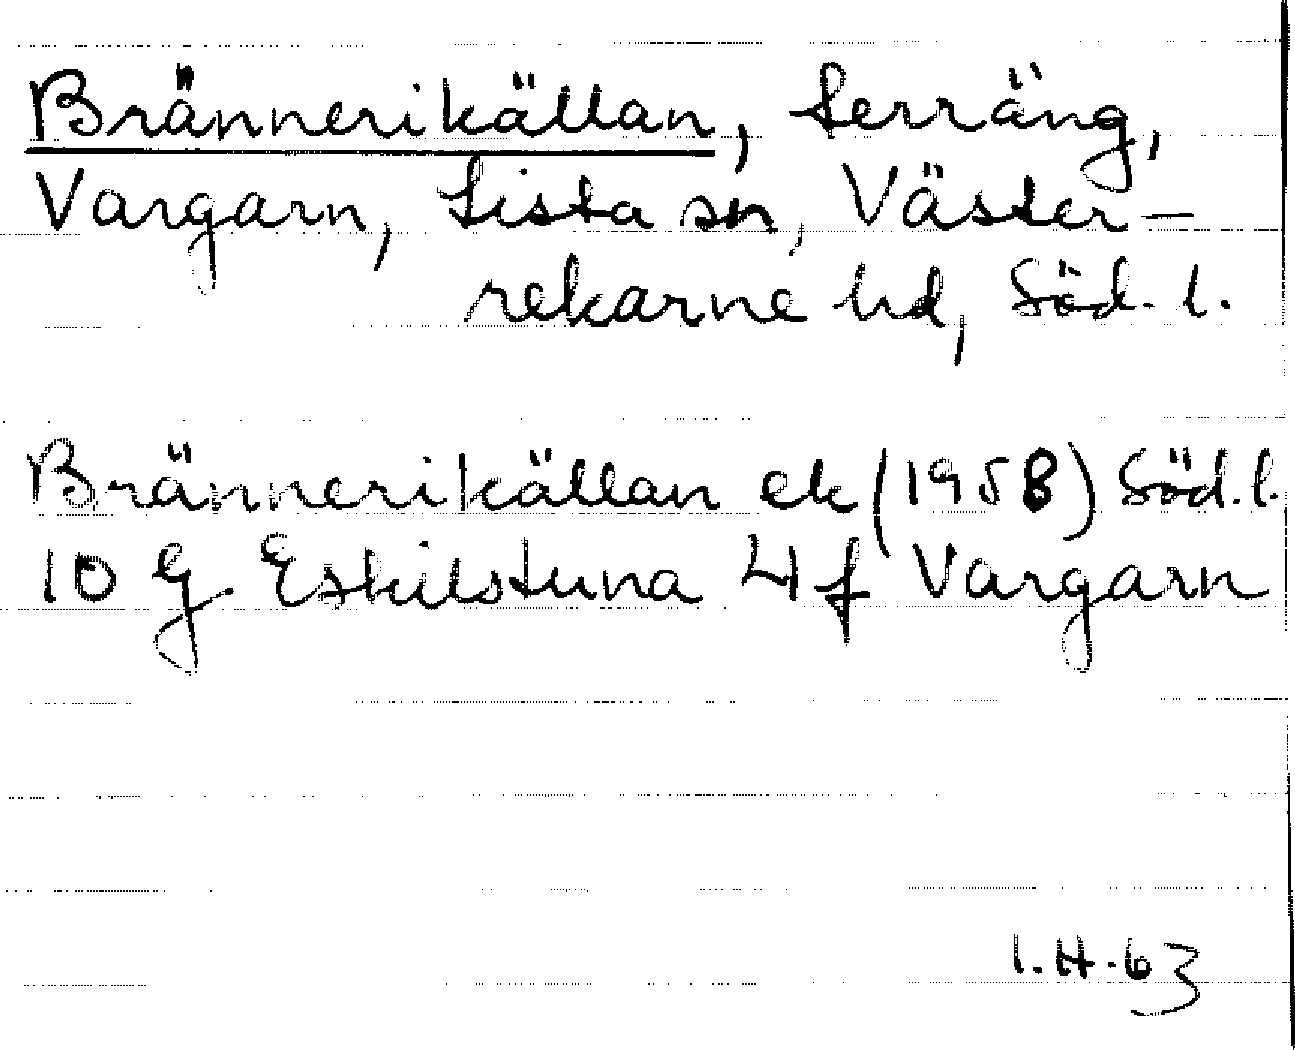 Brännerikällan, Serräng,
Vargarn, Lista sn, Väster-
rekarne hd, Söd. l.
Brännerikällan ek (1958) Söd. l.
10 G Eskilstuna 4 f Vargarn
I.H. 63